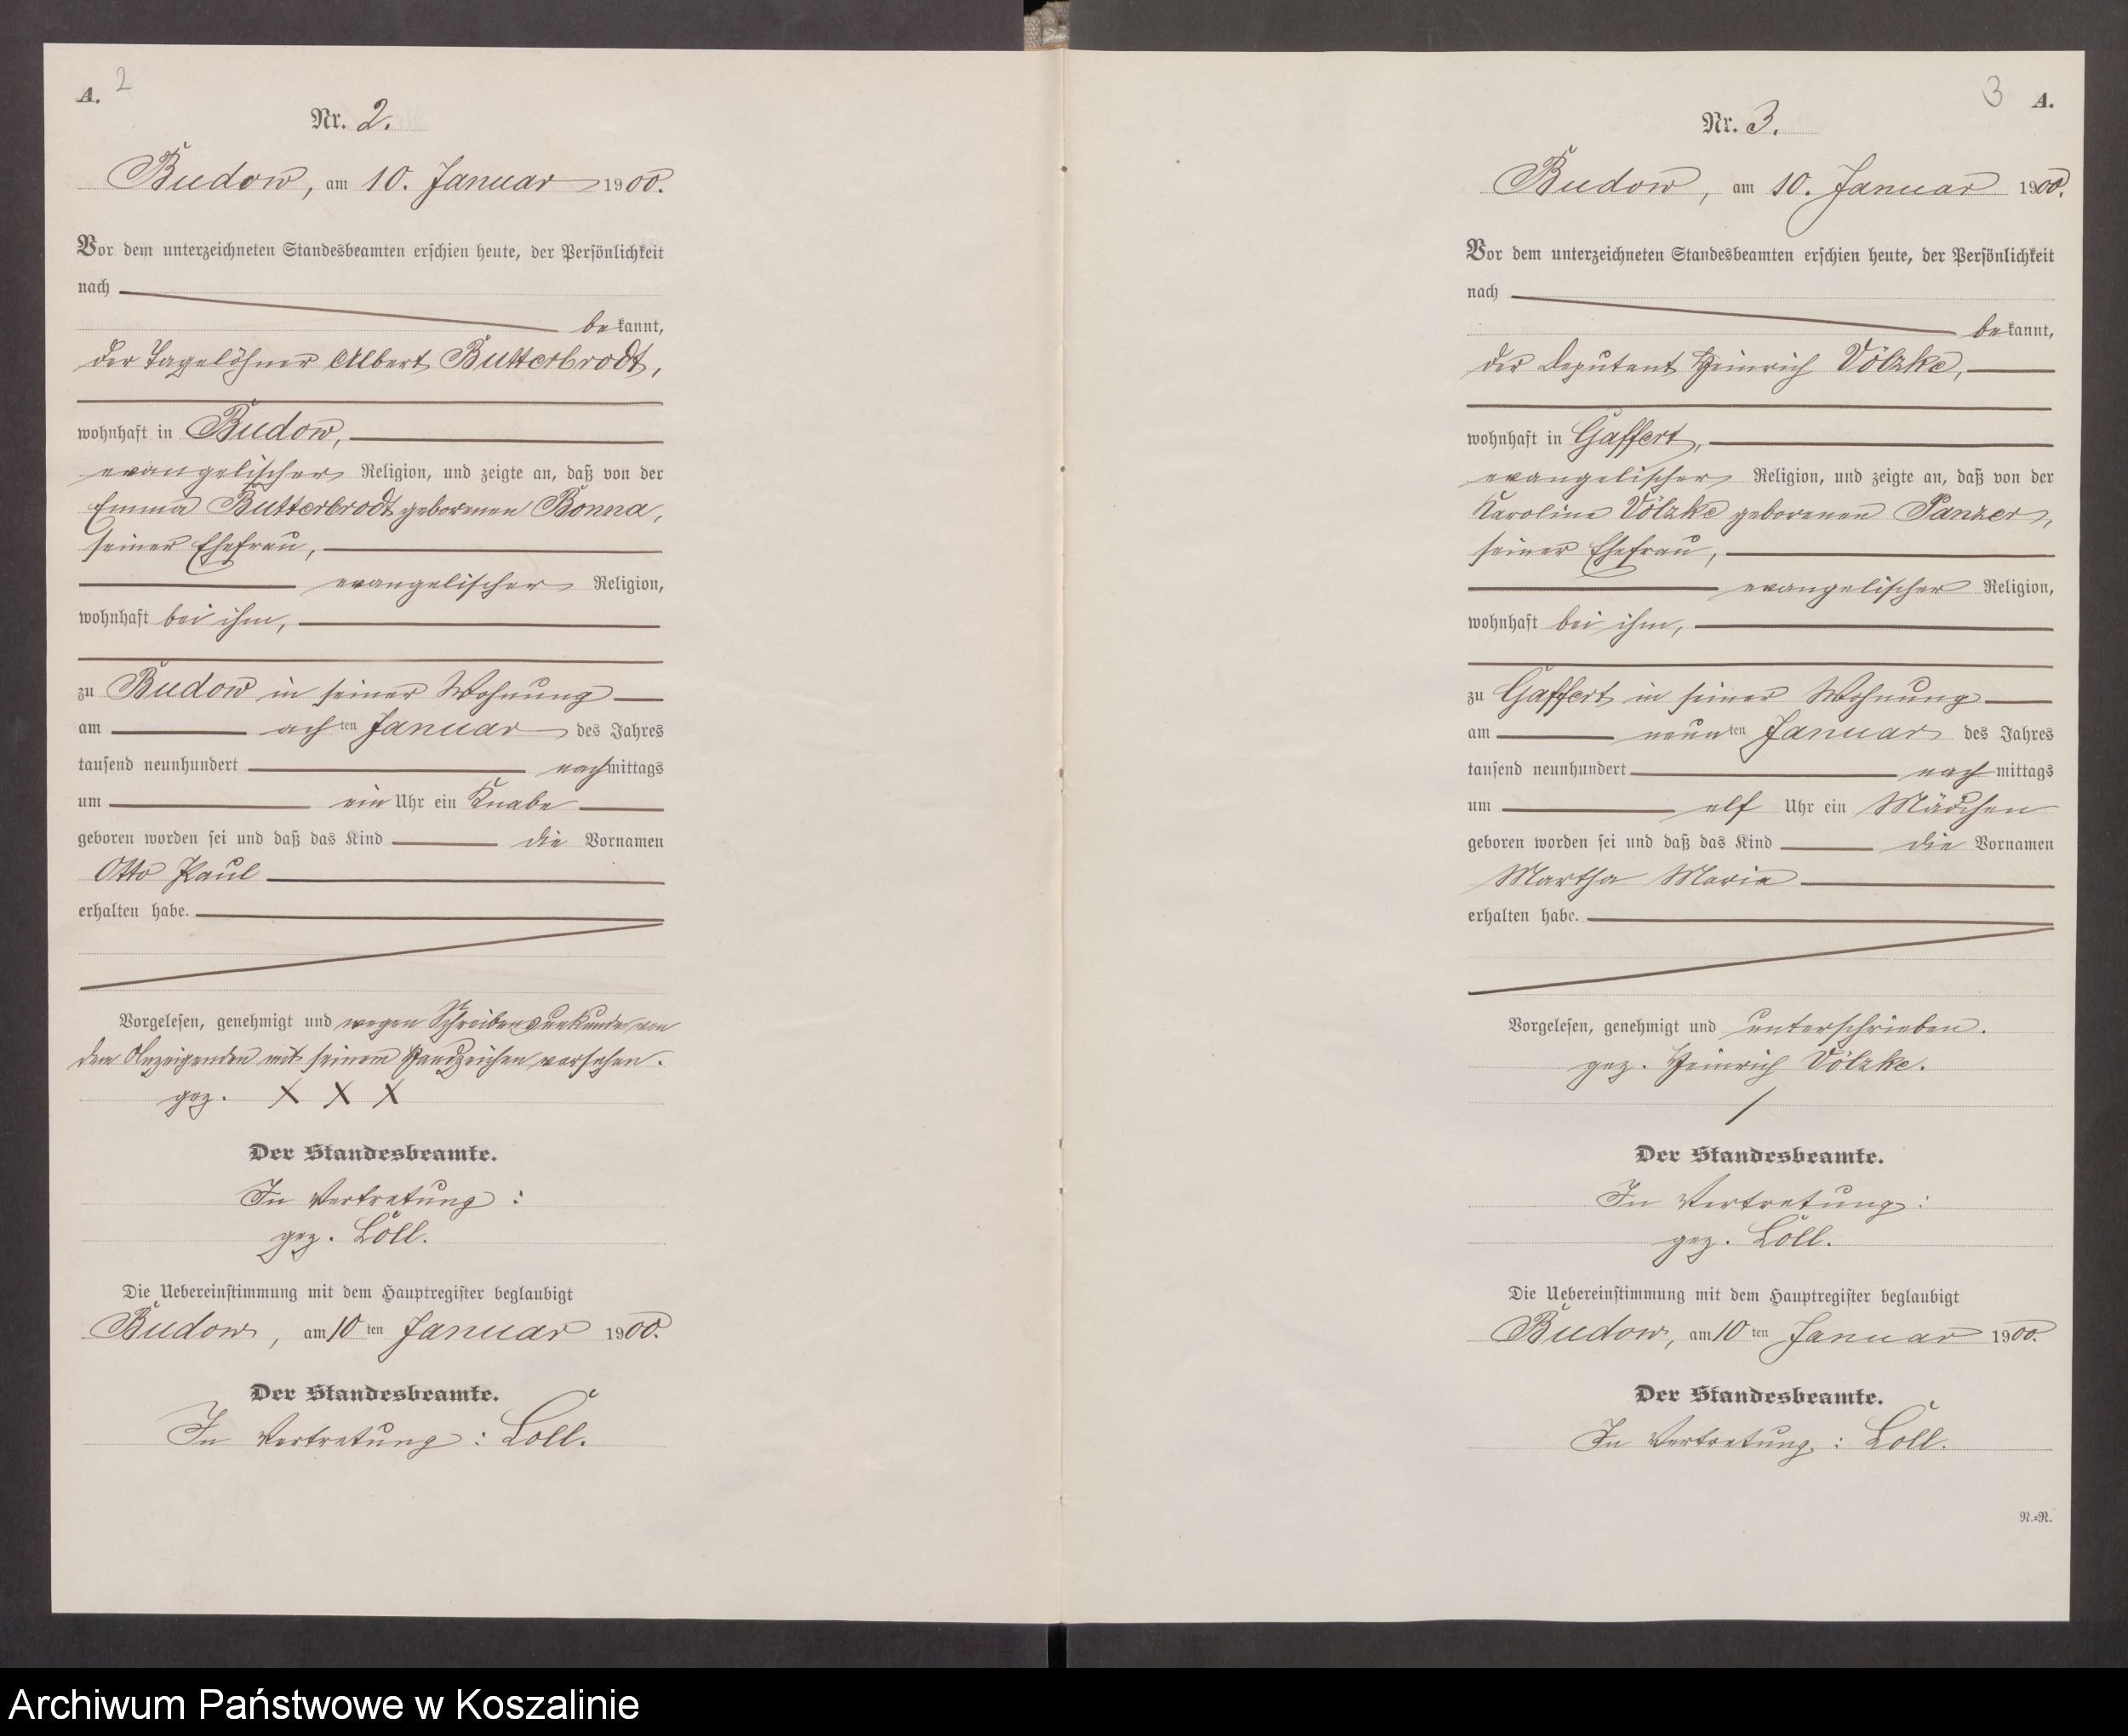 A. 2
Nr. 2.
Budow, am 10. Januar 1900.
Vor dem unterzeichneten Standesbeamten erschien heute, der Persönlichkeit
nach
bekannt,
der Tagelöhner Albert Butterbrodt,
wohnhaft in Budow,
evangelischer Religion, und zeigte an, daß von der
Emma Butterbrodt geborenen Bonna,
seiner Ehefrau,
evangelischer Religion,
wohnhaft bei ihm,
zu Budow in seiner Wohnung
am achten Januar des Jahres
tausend neunhundert nachmittags
um ein Uhr ein Knabe
geboren worden sei und daß das Kind die Vornamen
Otto Paul
erhalten habe.
Vorgelesen, genehmigt und wegen Schreibensunkunde von
dem Anzeigenden mit seinem Handzeichen versehen.
gez. X X X
Der Standesbeamte.
In Vertretung:
gez. Loll.
Die Uebereinstimmung mit dem Hauptregister beglaubigt
Budow, am 10ten Januar 1900.
Der Standesbeamte.
In Vertretung: Loll.
3 A.
Nr. 3.
Budow, am 10. Januar 1900.
Vor dem unterzeichneten Standesbeamten erschien heute, der Persönlichkeit
nach
bekannt,
der Deputant Heinrich Völzke,
wohnhaft in Gaffert,
evangelischer Religion, und zeigte an, daß von der
Karoline Völzke geborenen Panzer,
seiner Ehefrau,
evangelischer Religion,
wohnhaft bei ihm,
zu Gaffert in seiner Wohnung
am neunten Januar des Jahres
tausend neunhundert nachmittags
um elf Uhr ein Mädchen
geboren worden sei und daß das Kind die Vornamen
Martha Maria
erhalten habe.
Vorgelesen, genehmigt und unterschrieben.
gez. Heinrich Völzke.
Der Standesbeamte.
In Vertretung:
gez. Loll.
Die Uebereinstimmung mit dem Hauptregister beglaubigt
Budow, am 10ten Januar 1900.
Der Standesbeamte.
In Vertretung: Loll.
N.=R.
Archiwum Państwowe w Koszalinie